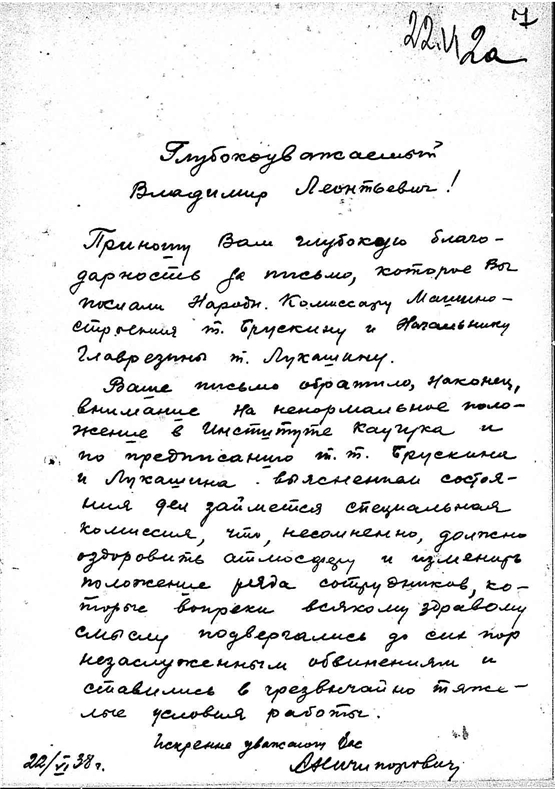 7
22.VI 2а
Глубокоуважаемый
Владимир Леонтьевич!
Приношу Вам глубокую благо-
дарность за письмо, которое Вы
послали Народн. Комиссару Машино-
строения т. Брускину и Начальнику
Главрезины т. Лукашину.
Ваше письмо обратило, наконец,
внимание на ненормальное поло-
жение в Институте Каучука и
по предписанию т.т. Брускина
и Лукашина выяснением состоя-
ния дел займется специальная
комиссия, что, несомненно, должно
оздоровить атмосферу и изменить
положение ряда сотрудников, ко-
торые вопреки всякому здравому
смыслу подвергались до сих пор
незаслуженным обвинениям и
ставились в чрезвычайно тяже-
лые условия работы.
Искренне уважающий Вас
22/VI 38г. АНичипорович